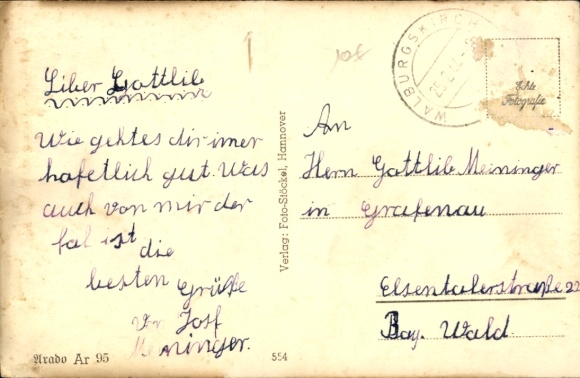 Liber Gottlib
Wie gehtes dir imer
hofetlich gut. Was
auch von mir der
fal ist die
besten Grüße
Vr Josf
Meininger.
Arado Ar 95
554
Verlag: Foto-Stöckel, Hannover
WALBURGSKIRCH
Echte
Fotografie
An
Herrn Gottlib Meininger
in Grafenau
Elsentalerstraße 22
Bay. Wald